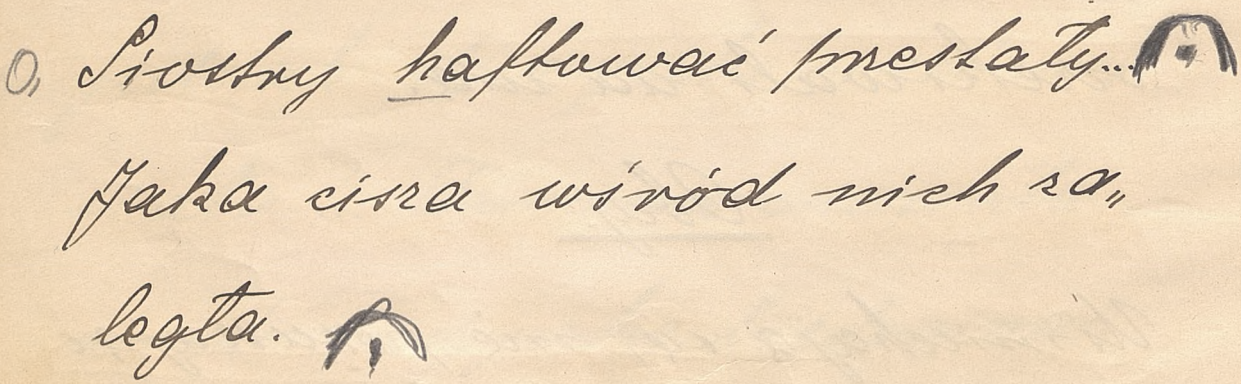 O, Siostry haftować przestały...
Jaka cisza wśród nich za„
legła.